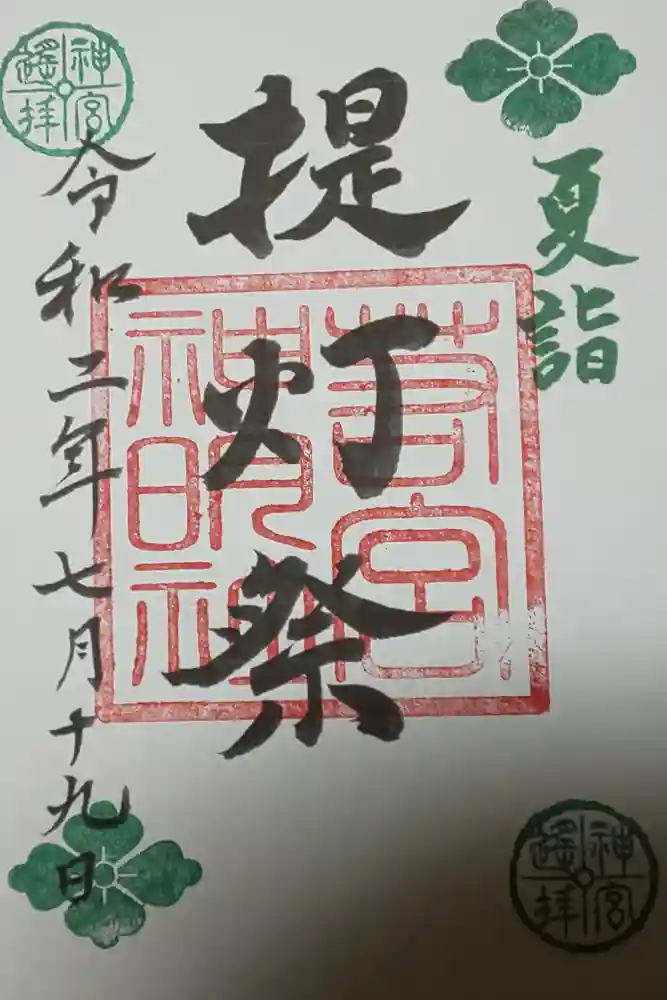 夏詣
提灯祭
若宮
神明社
令和二年七月十九日
神宮
遙拝
神宮
遙拝